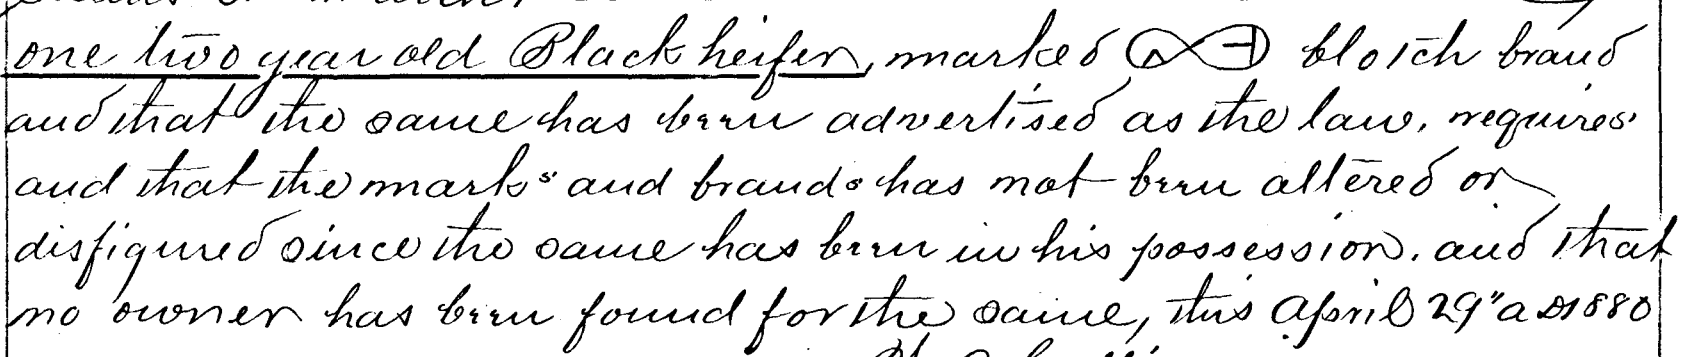 one two year old Black heifer, marked blotch brand
and that the same has been advertised as the law, requires
and that the marks and brands has not been altered or
disfigured since the same has been in his possession. and that
no owner has been found for the same, this April 29" a D 1880